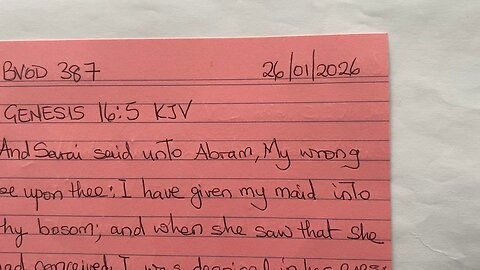 BVOD 387 26/01/2026
GENESIS 16:5 KJV
And Sarai said unto Abram, My wrong
be upon thee: I have given my maid into
thy bosom; and when she saw that she
had conceived, I was despised in her eyes: